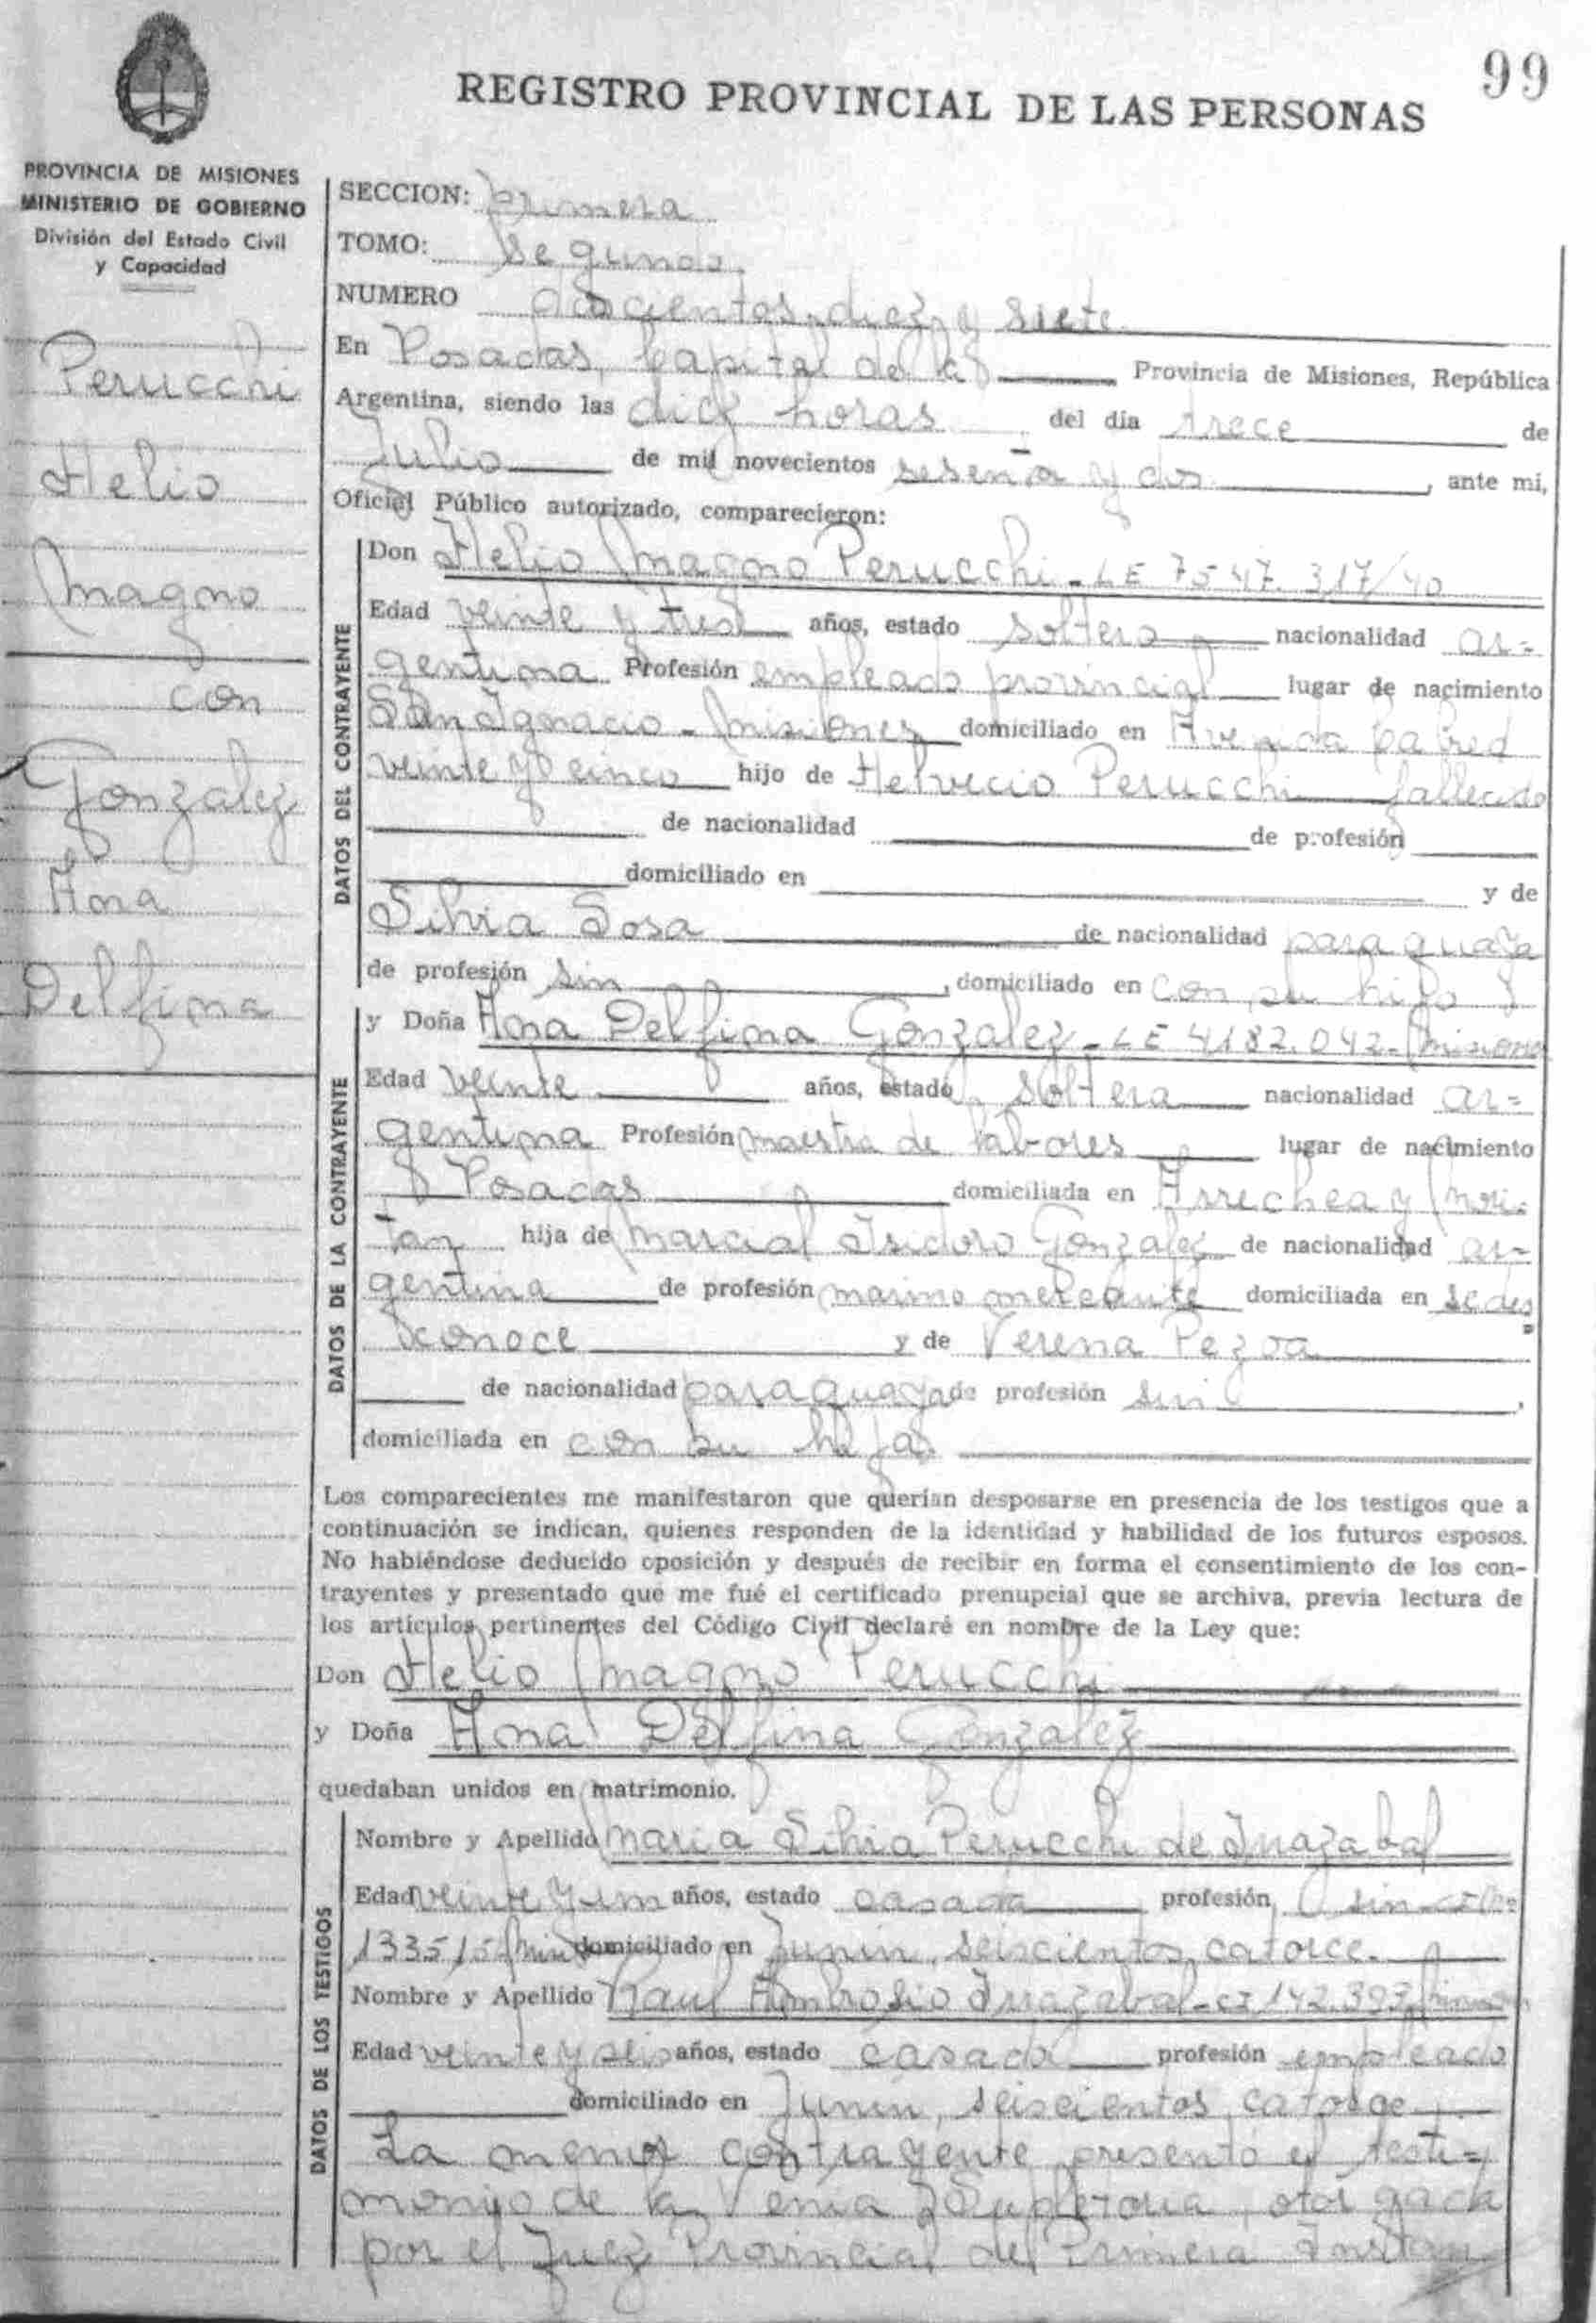 99
REGISTRO PROVINCIAL DE LAS PERSONAS
PROVINCIA DE MISIONES
MINISTERIO DE GOBIERNO
División del Estado Civil
y Capacidad
Perucchi
Helio
Magno
con
Gonzalez
Ana
Delfina
SECCION: primera
TOMO: segundo
NUMERO doscientos diez y siete
En Posadas, Capital de la Provincia de Misiones, República
Argentina, siendo las diez horas del día trece de
Julio de mil novecientos sesenta y dos, ante mi,
Oficial Público autorizado, comparecieron:
DATOS DEL CONTRAYENTE
Don Helio Magno Perucchi - LE 7547.317/40
Edad veinte y tres años, estado soltero nacionalidad ar=
gentina Profesión empleado provincial lugar de nacimiento
San Ignacio - Misiones domiciliado en Avenida Cabred
veinte y cinco hijo de Helvecio Perucchi fallecido
de nacionalidad de profesión
domiciliado en y de
Silvia Sosa de nacionalidad paraguaya
de profesión sin, domiciliado en con su hijo
DATOS DE LA CONTRAYENTE
y Doña Ana Delfina Gonzalez - LE 4182.042 - Misiones
Edad veinte años, estado soltera nacionalidad ar=
gentina Profesión maestra de labores lugar de nacimiento
Posadas domiciliada en Arrechea y
hija de Marcial Isidoro Gonzalez de nacionalidad ar=
gentina de profesión marino mercante domiciliada en se des
conoce y de Verena Pezoa
de nacionalidad paraguaya de profesión sin,
domiciliada en con su hija
Los comparecientes me manifestaron que querían desposarse en presencia de los testigos que a
continuación se indican, quienes responden de la identidad y habilidad de los futuros esposos.
No habiéndose deducido oposición y después de recibir en forma el consentimiento de los con-
trayentes y presentado que me fué el certificado prenupcial que se archiva, previa lectura de
los artículos pertinentes del Código Civil declaré en nombre de la Ley que:
Don Helio Magno Perucchi
y Doña Ana Delfina Gonzalez
quedaban unidos en matrimonio.
DATOS DE LOS TESTIGOS
Nombre y Apellido Maria Silvia Perucchi de Inazabal
Edad veinte y un años, estado casada profesión sin
domiciliado en Junin, seiscientos catorce.
Nombre y Apellido Raul Ambrosio Inazabal - CI 142.393
Edad veinte y seis años, estado casado profesión empleado
domiciliado en Junin, seiscientos catorce
La menor contrayente presentó el testi=
monio de la Venia Supletoria, otorgada
por el Juez Provincial de Primera Instan